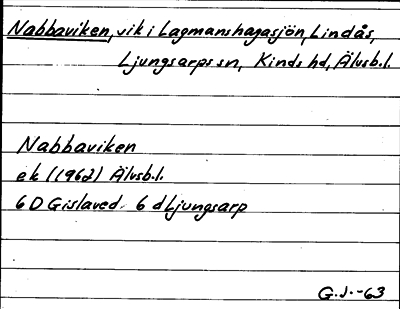 Nabbaviken, vik i Lagmanshagasjön, Lindås,
Ljungsarps sn, Kinds hd, Älvsb.l.
Nabbaviken
ek (1962) Älvsb.l.
6 D Gislaved 6 d Ljungsarp
G.J.-63